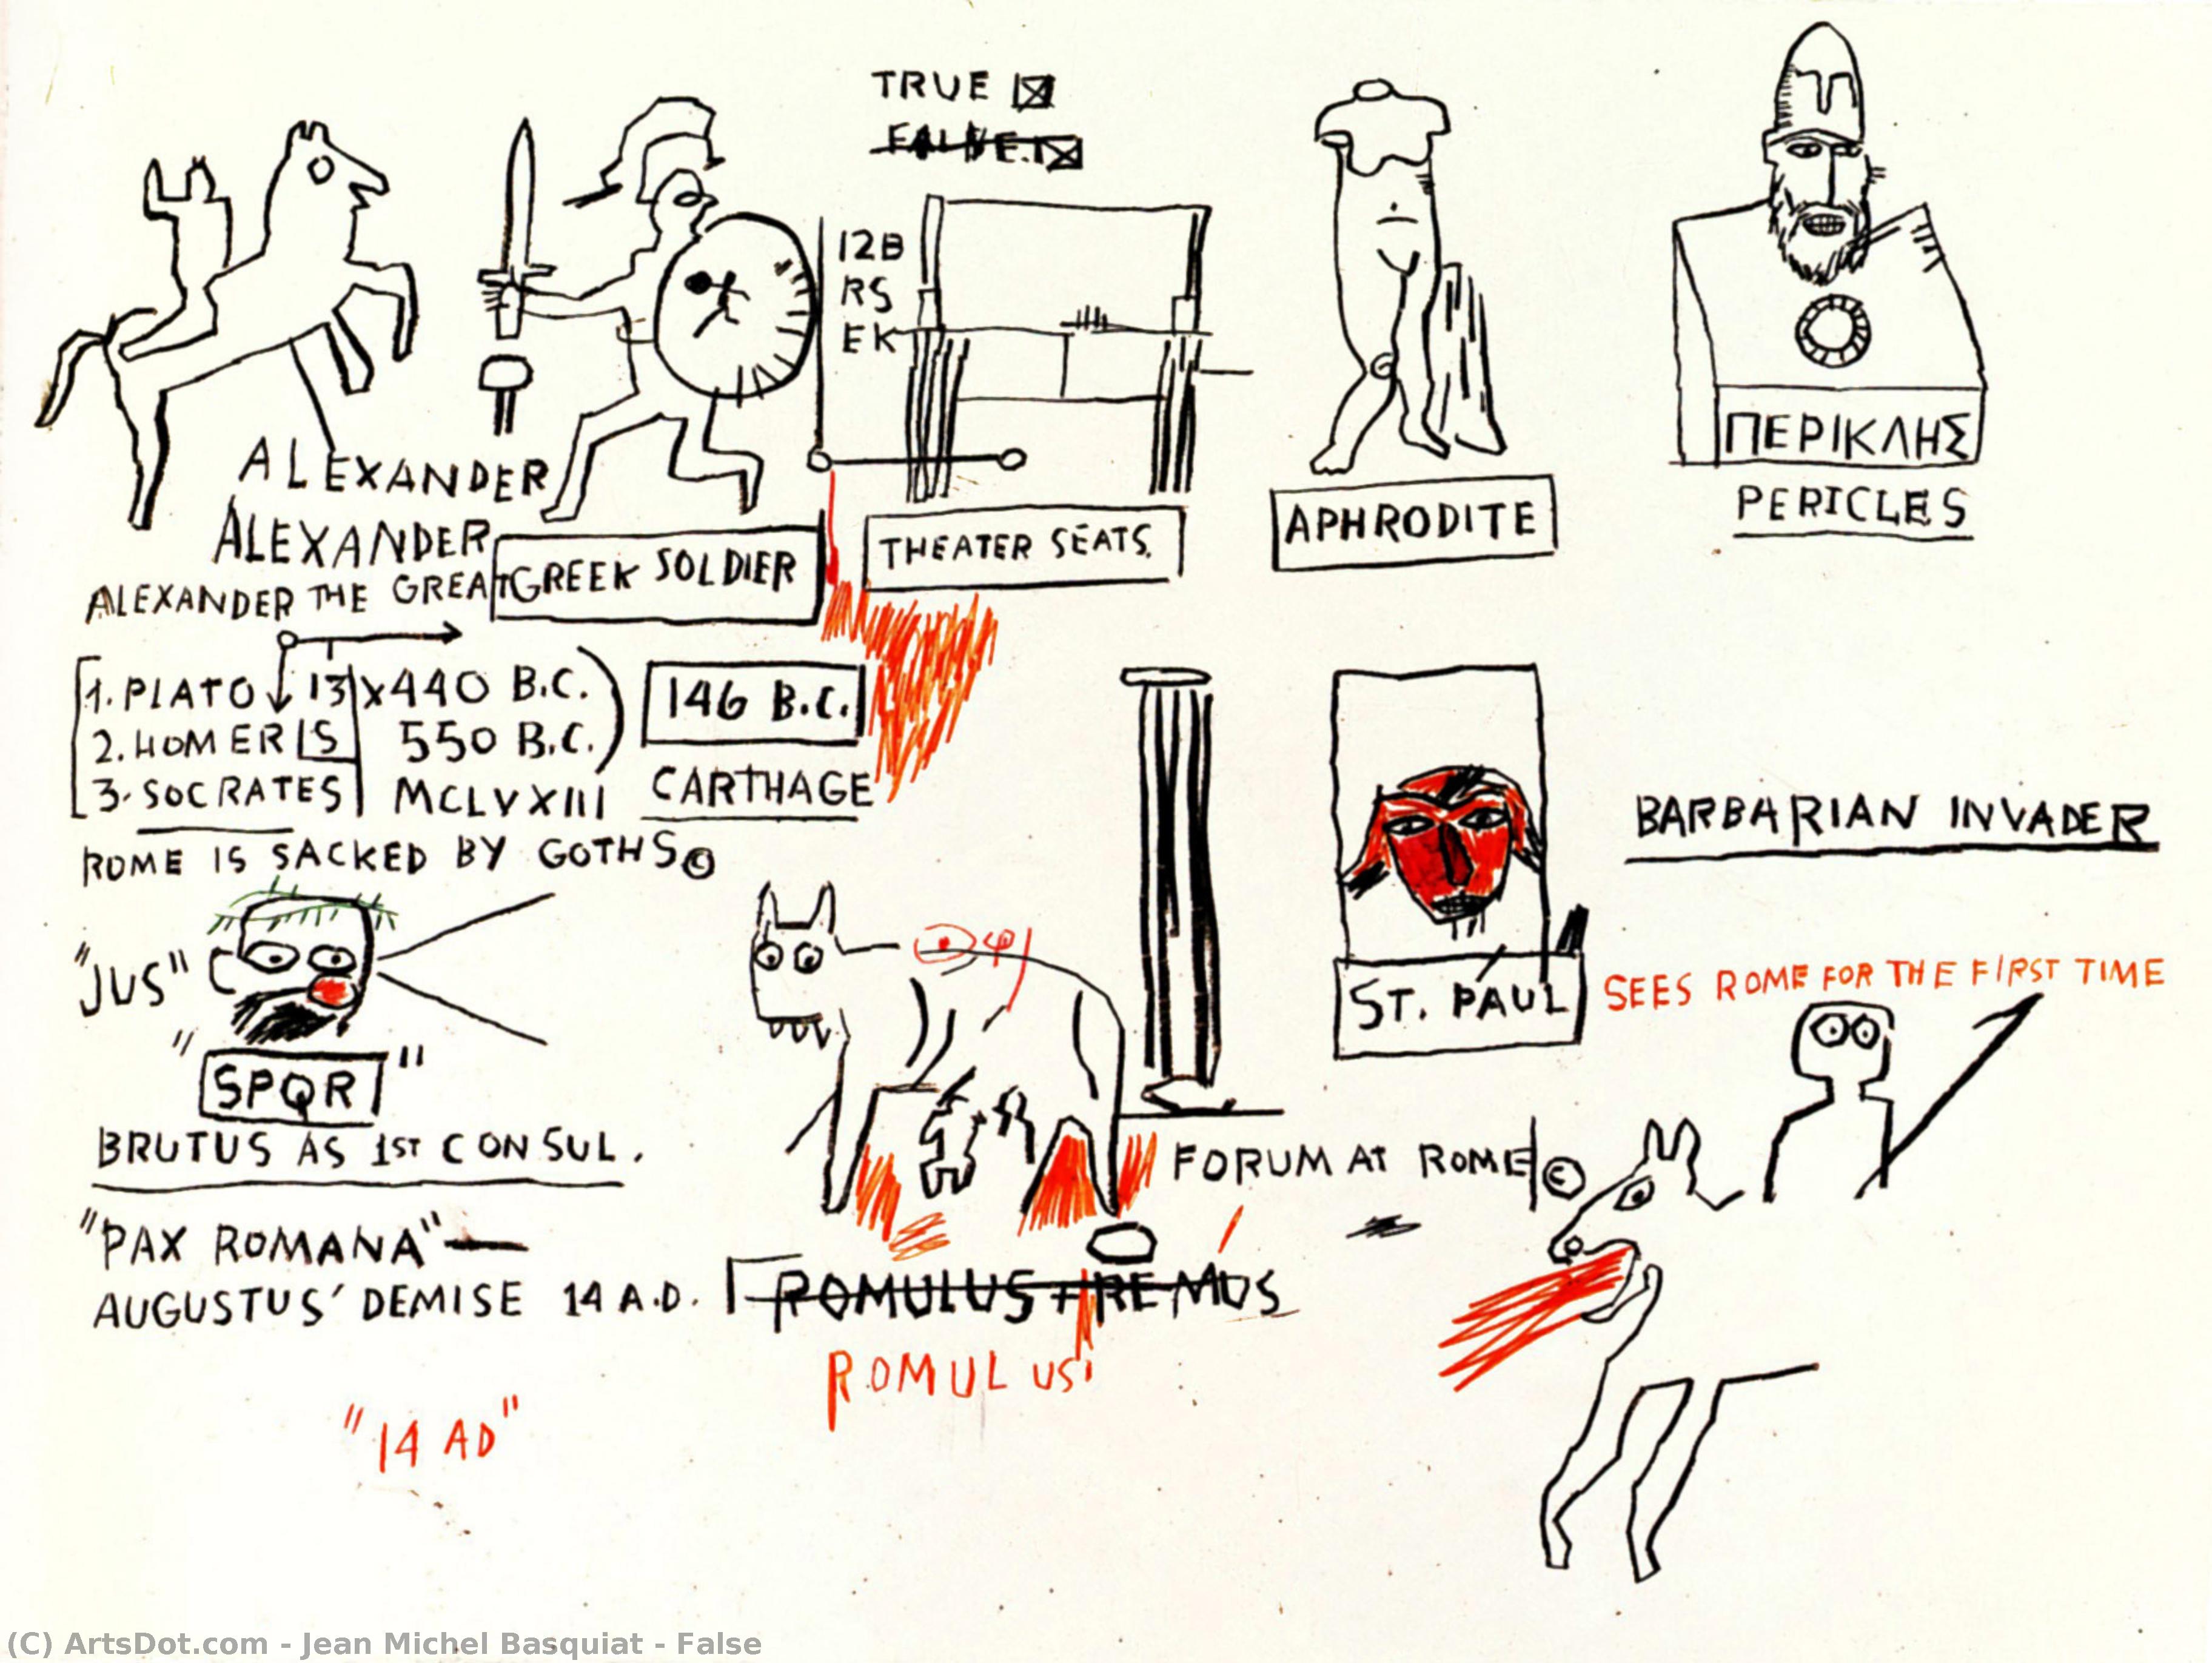 TRUE
FALSE.
12B
RS
EK
ALEXANDER
ALEXANDER
ALEXANDER THE GREAT
GREEK SOLDIER
THEATER SEATS.
APHRODITE
ΠΕΡΙΚΛΗΣ
PERICLES
1. PLATO 13 X440 B.C.
2. HOMER IS 550 B.C.
3. SOCRATES MCLVXIII
146 B.C.
CARTHAGE
ROME IS SACKED BY GOTHS ©
"JUS"
"SPQR"
BRUTUS AS 1ST CONSUL.
"PAX ROMANA"—
AUGUSTUS' DEMISE 14 A.D.
"14 AD"
ROMULUS + REMUS
ROMULUS
FORUM AT ROME ©
ST. PAUL
BARBARIAN INVADER
SEES ROME FOR THE FIRST TIME
(C) ArtsDot.com - Jean Michel Basquiat - False